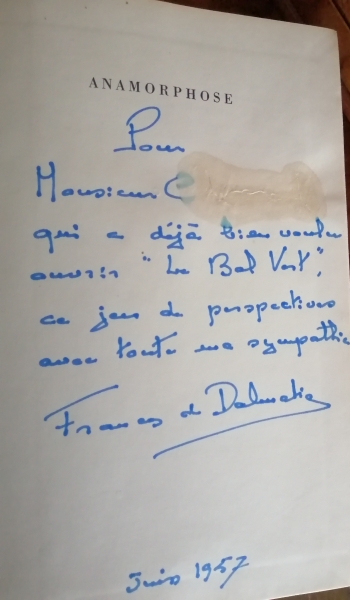 ANAMORPHOSE
Pour
Monsieur C
qui a déjà bien voulu
ouvrir "Le Bal Vert",
ce jeu de perspectives
avec toute ma sympathie
Frances de Dalmatie
Juin 1957